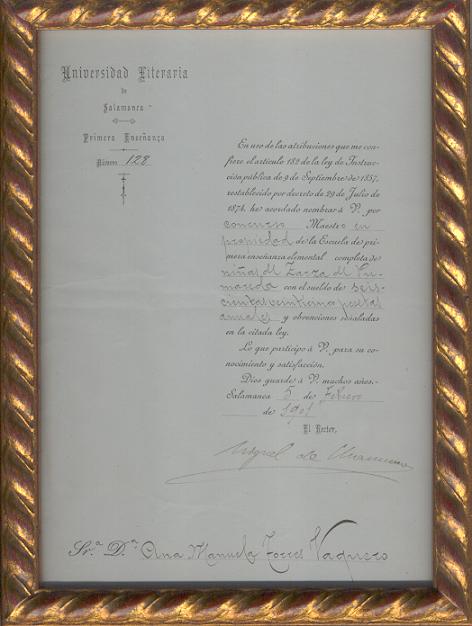 Universidad Literaria
de
Salamanca
Primera Enseñanza
Núm. 128
En uso de las atribuciones que me con-
fiere el artículo 182 de la ley de Instruc-
ción pública de 9 de Septiembre de 1857,
restablecido por decreto de 29 de Julio de
1874, he acordado nombrar á V. por
concurso Maestro en
propiedad de la Escuela de pri-
mera enseñanza elemental completa de
niñas de Zarza de Pu-
mareda con el sueldo de seis-
cientas veinticinco pesetas
anuales y obvenciones señaladas
en la citada ley.
Lo que participo á V. para su co-
nocimiento y satisfacción.
Dios guarde á V. muchos años.
Salamanca 5 de Febrero
de 1901
El Rector,
Miguel de Unamuno
Sr.ª D.ª Ana Manuela Torres Vaquero